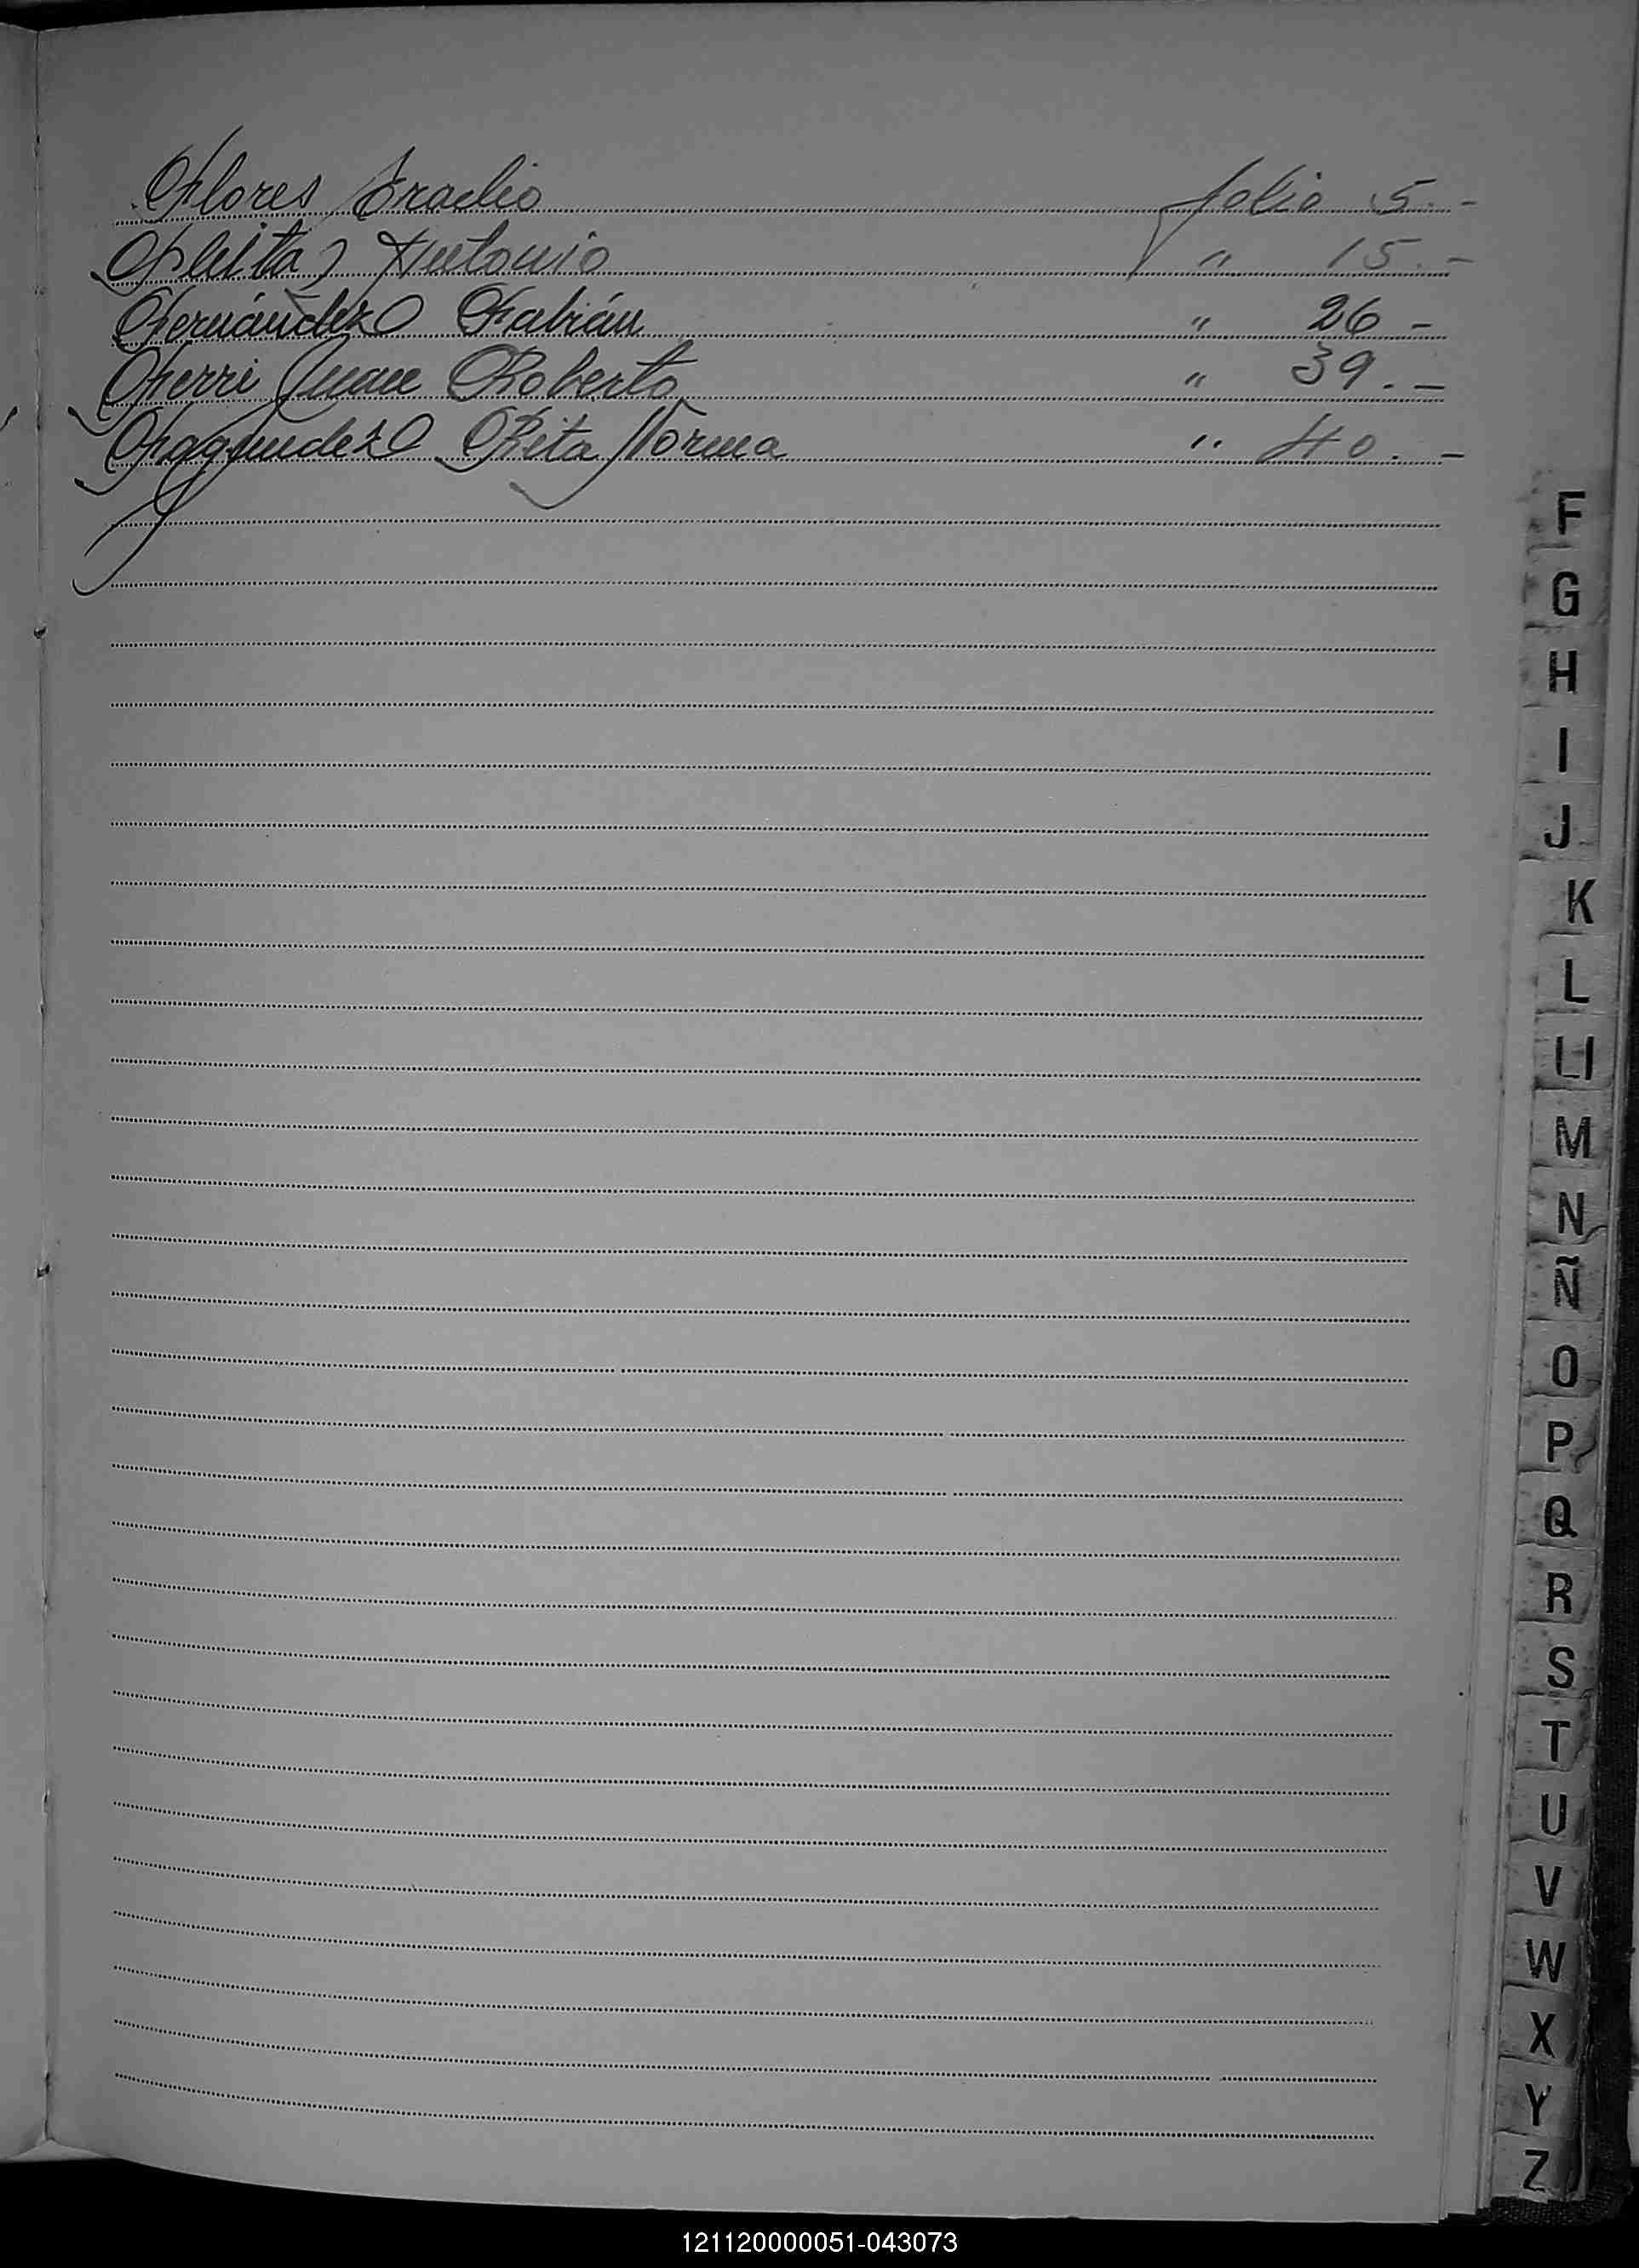 Flores Eraclio folio 5.-
Fleitas Antonio " 15.-
Fernández Fabián " 26-
Ferri Juan Roberto " 39.-
Fagundez Rita Norma " 40.-
F
G
H
I
J
K
L
Ll
M
N
Ñ
O
P
Q
R
S
T
U
V
W
X
Y
Z
121120000051-043073